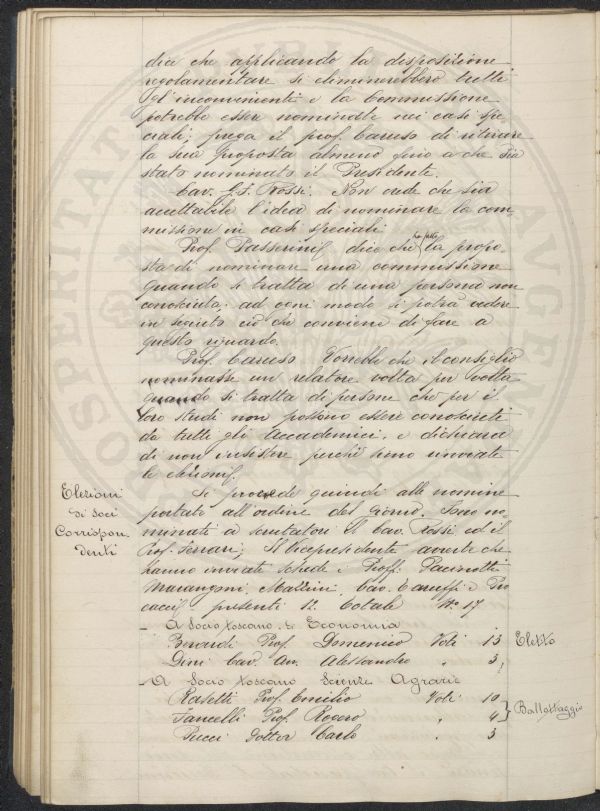 dice che applicando la disposizione
regolamentare si eliminerebbero tutti
gl'inconvenienti e la Commissione
potrebbe esser nominata nei casi spe
ciali; prega il prof. Caruso di ritirare
la sua proposta almeno fino a che sia
stato nominato il Presidente.
Cav. G. S. Rossi. Non crede che sia
accettabile l'idea di nominare la com
missione in casi speciali.
Prof. Passerini dice che ha fatto la propo-
sta di nominare una commissione
quando si tratta di una persona non
conosciuta; ad ogni modo si potrà vedere
in seguito ciò che converrà di fare a
questo riguardo.
Prof. Caruso Vorrebbe che il consiglio
nominasse un relatore volta per volta
quando si tratta di persone che per i
loro studi non possono essere conosciuti
da tutti gli Accademici, e dichiara
di non insistere perchè siano rinviate
le elezioni.
Elezioni
di soci
Corrispon
denti
Si procede quindi alle nomine
portate all'ordine del giorno. Sono no
minati a scrutatori Il Cav. Rossi ed il
Prof. Ferrari; Il Vicepresidente avverte che
hanno inviati schede i Proff. Pacinotti
Marangoni, Mazzini, Cav. Caruffi e Pro
cacci, presenti 12. totale No 17
- A Socio toscano. Economia
Berardi Prof. Domenico Voti 13 Eletto
Dini Cav. Av. Alessandro " 3
- A Socio toscano Scienze Agrarie
Rasetti Prof. Emilio Voti 10
Fancelli Prof. Rogero " 4 Ballottaggio
Pucci Dottor Carlo " 3